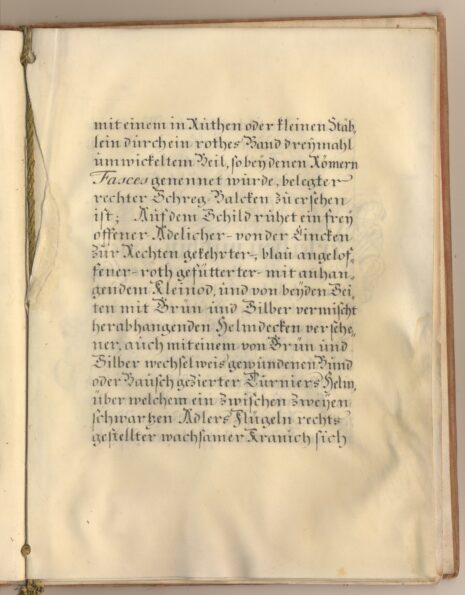 mit einem in Ruthen oder kleinen Stäb„
lein durch ein rothes Band dreymahl
umwickeltem Beil, so bey denen Römern
Fasces genennet würde, belegter
rechter Schreg-Balcken zu ersehen
ist; Auf dem Schild ruhet ein frey
offener Adelicher- von der Lincken
zur Rechten gekehrter-, blau angelof„
fener- roth gefütterter- mit anhan„
gendem Kleinod, und von beyden Sei„
ten mit Grün und Silber vermischt
herabhangenden Helmdecken versehe„
ner, auch mit einem von Grün und
Silber wechselweis gewundenen Bund
oder Bausch gezierter Turniers Helm,
über welchem ein zwischen zweyen
schwartzen Adlers Flügeln rechts
gestellter wachsamer Kranich sich